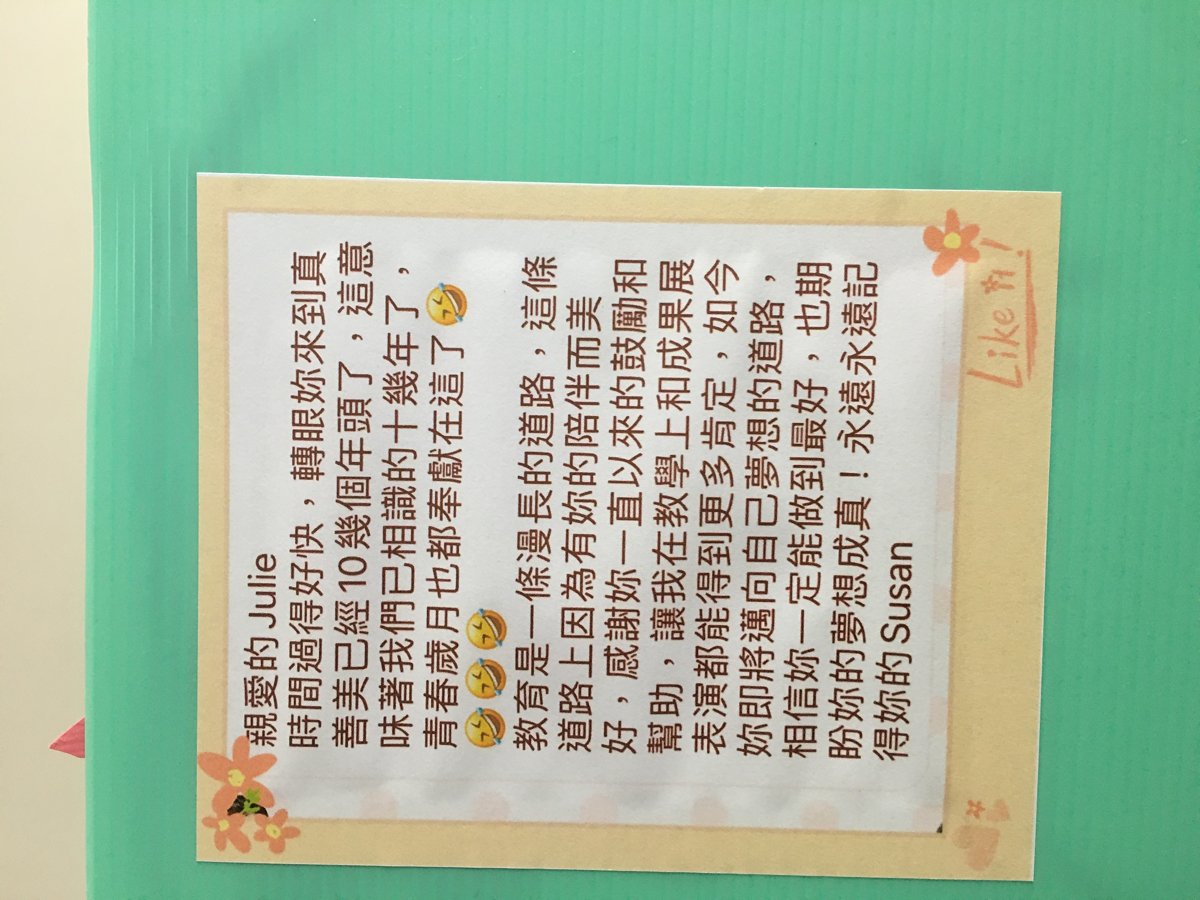 親愛的 Julie
時間過得好快，轉眼妳來到真
善美已經 10 幾個年頭了，這意
味著我們已相識的十幾年了，
青春歲月也都奉獻在這了🤣
🤣🤣🤣
教育是一條漫長的道路，這條
道路上因為有妳的陪伴而美
好，感謝妳一直以來的鼓勵和
幫助，讓我在教學上和成果展
表演都能得到更多肯定，如今
妳即將邁向自己夢想的道路，
相信妳一定能做到最好，也期
盼妳的夢想成真！永遠永遠記
得妳的 Susan
Like it!